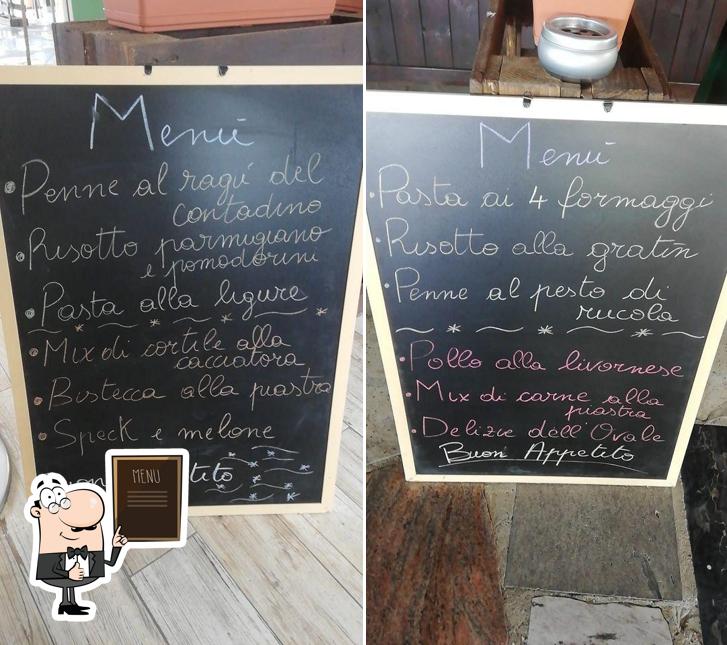 Menù
Penne al ragù del
contadino
Risotto parmigiano
e pomodorini
Pasta alla ligure
Mix di cortile alla
cacciatora
Bistecca alla piastra
Speck e melone
MENU
Menù
Pasta ai 4 formaggi
Risotto alla gratin
Penne al pesto di
rucola
Pollo alla livornese
Mix di carne alla
piastra
Delizie dell'Ovale
Buon Appetito